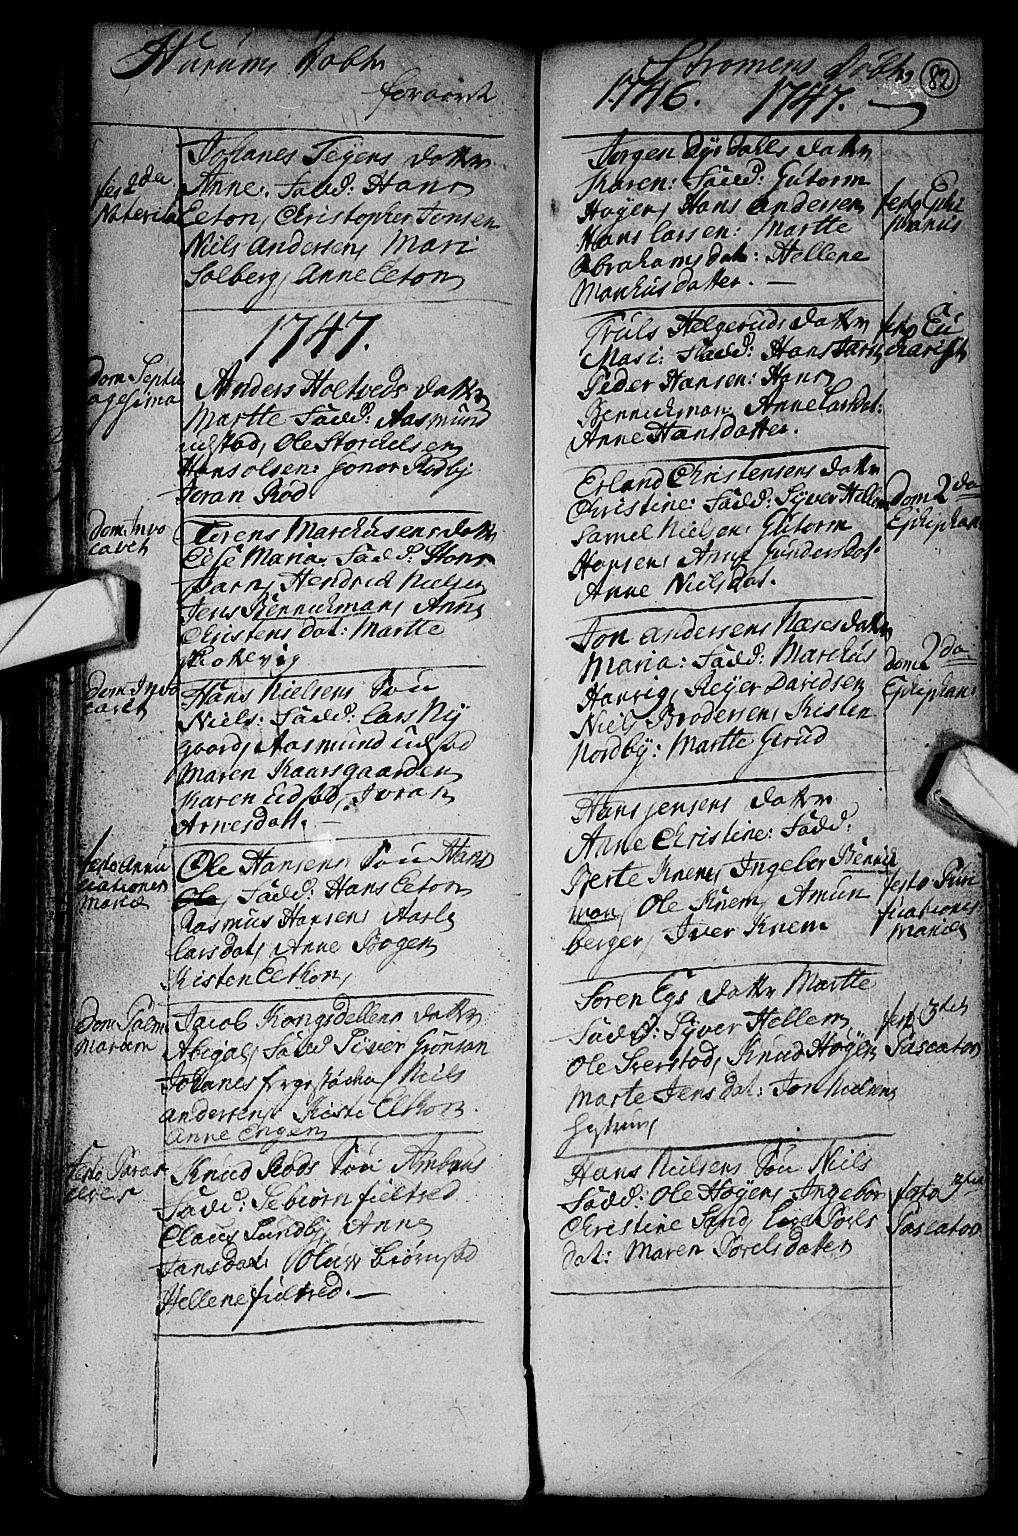 Hurums Døbte
foraaret
fest 2da
Nativita
Johanes Tejens datter
Anne. Fadd: Hans
Eeton, Christopher Jonsen
Niels Andersen, Mari
Solberg, Anne Eeton
1747.
dom Septu
agesima
Anders Holtveds datter
Marthe Fadd: Aasmund
udstad, Ole Storchelsen
Hans olsen: Gonor Rødbÿ
Joran Rød.
dom: Invo
cavit
Torens Marchusens datter
Else Maria. Fadd: Hans
Parn, Hendrich Nielsen
Jens Bennichmans Anne
Christens dat: Martte
dom Invo
cavit
Hans Nielsens Søn
Niels: Fadd: Lars Nÿ
goord, Aasmund udstad
Maren Kaarsgaarden
Karen Eidstad, Joran
Arnesdatt.
festo Annu
ciationis
Mariæ
Ole Hansens Søn Hans
Fadd: Hans Eeton
Rasmus Hansen, Aarle
Larsdat, Anne Bogen
Kisten Eethon,
Dom: Palm
Marum
Jacob Kongsdellens datter
Abigal, Fadd Siver Gunsan
Johanes Ergestøcka, Niels
andersen, Kiste Ethon.
Anne Engen
festo Paras
ceves
Knud Røds Søn Ambrus
Fadd: Sebiørn fieltred
Claus Sundbÿ, Anne
Jansdat, Oluv Biørnstad
Hellene fieltred. —
Strømens Døbte
82
1746. 1747. —
Jørgen Dÿrdalls datter
Karen: Fadd: Gutorm
Høyen, Hans Andersen
Hans Larsen: Martte
Abrahams dat: Hellene
Marchus datter. —
festo Ephi
phanias
Truls Helgeruds datter
Mari: Fadd: Hans Parn,
Peder Hansen: Hans
Bennichman, Anne Larsdat:
Anne Hansdatter.
festo Eu
charist
Erland Christensens datter
Christine: Fadd: Syver Hellem
Samel Nielsen, Gutorm
Hansen, Anne Gundersdat.
Anne Nielsdat.
dom 2da
Ephiphan:
Jon Andersens Næs datter
Maria: Fadd: Marchus
Haavig, Reÿer Davidsen
Niels Brodersen, Kisten
Nordbÿ: Martte Grud
dom 2da
Ephiphan:
Hans Jensens datter
Anne Christine: Fadd:
Berte Knem, Ingebor Bennich
man, Ole Knem, Amun
berger, Iver Knem
festo Puri
ficationis
Mariæ
Søren Egs datter Martte
Fadd: Syver Hellem,
Ole Sverstad, Knud Høyen
Marte Jens dat: Jon Nielsen
fest 3tis
Pascatos
Hans Nielsens Søn Niels
Fadd: Ole Høyen, Ingebor
Christine Sand, Lise Poels
dat: Maren Povelsdatter
festo 3tis
Pascatos